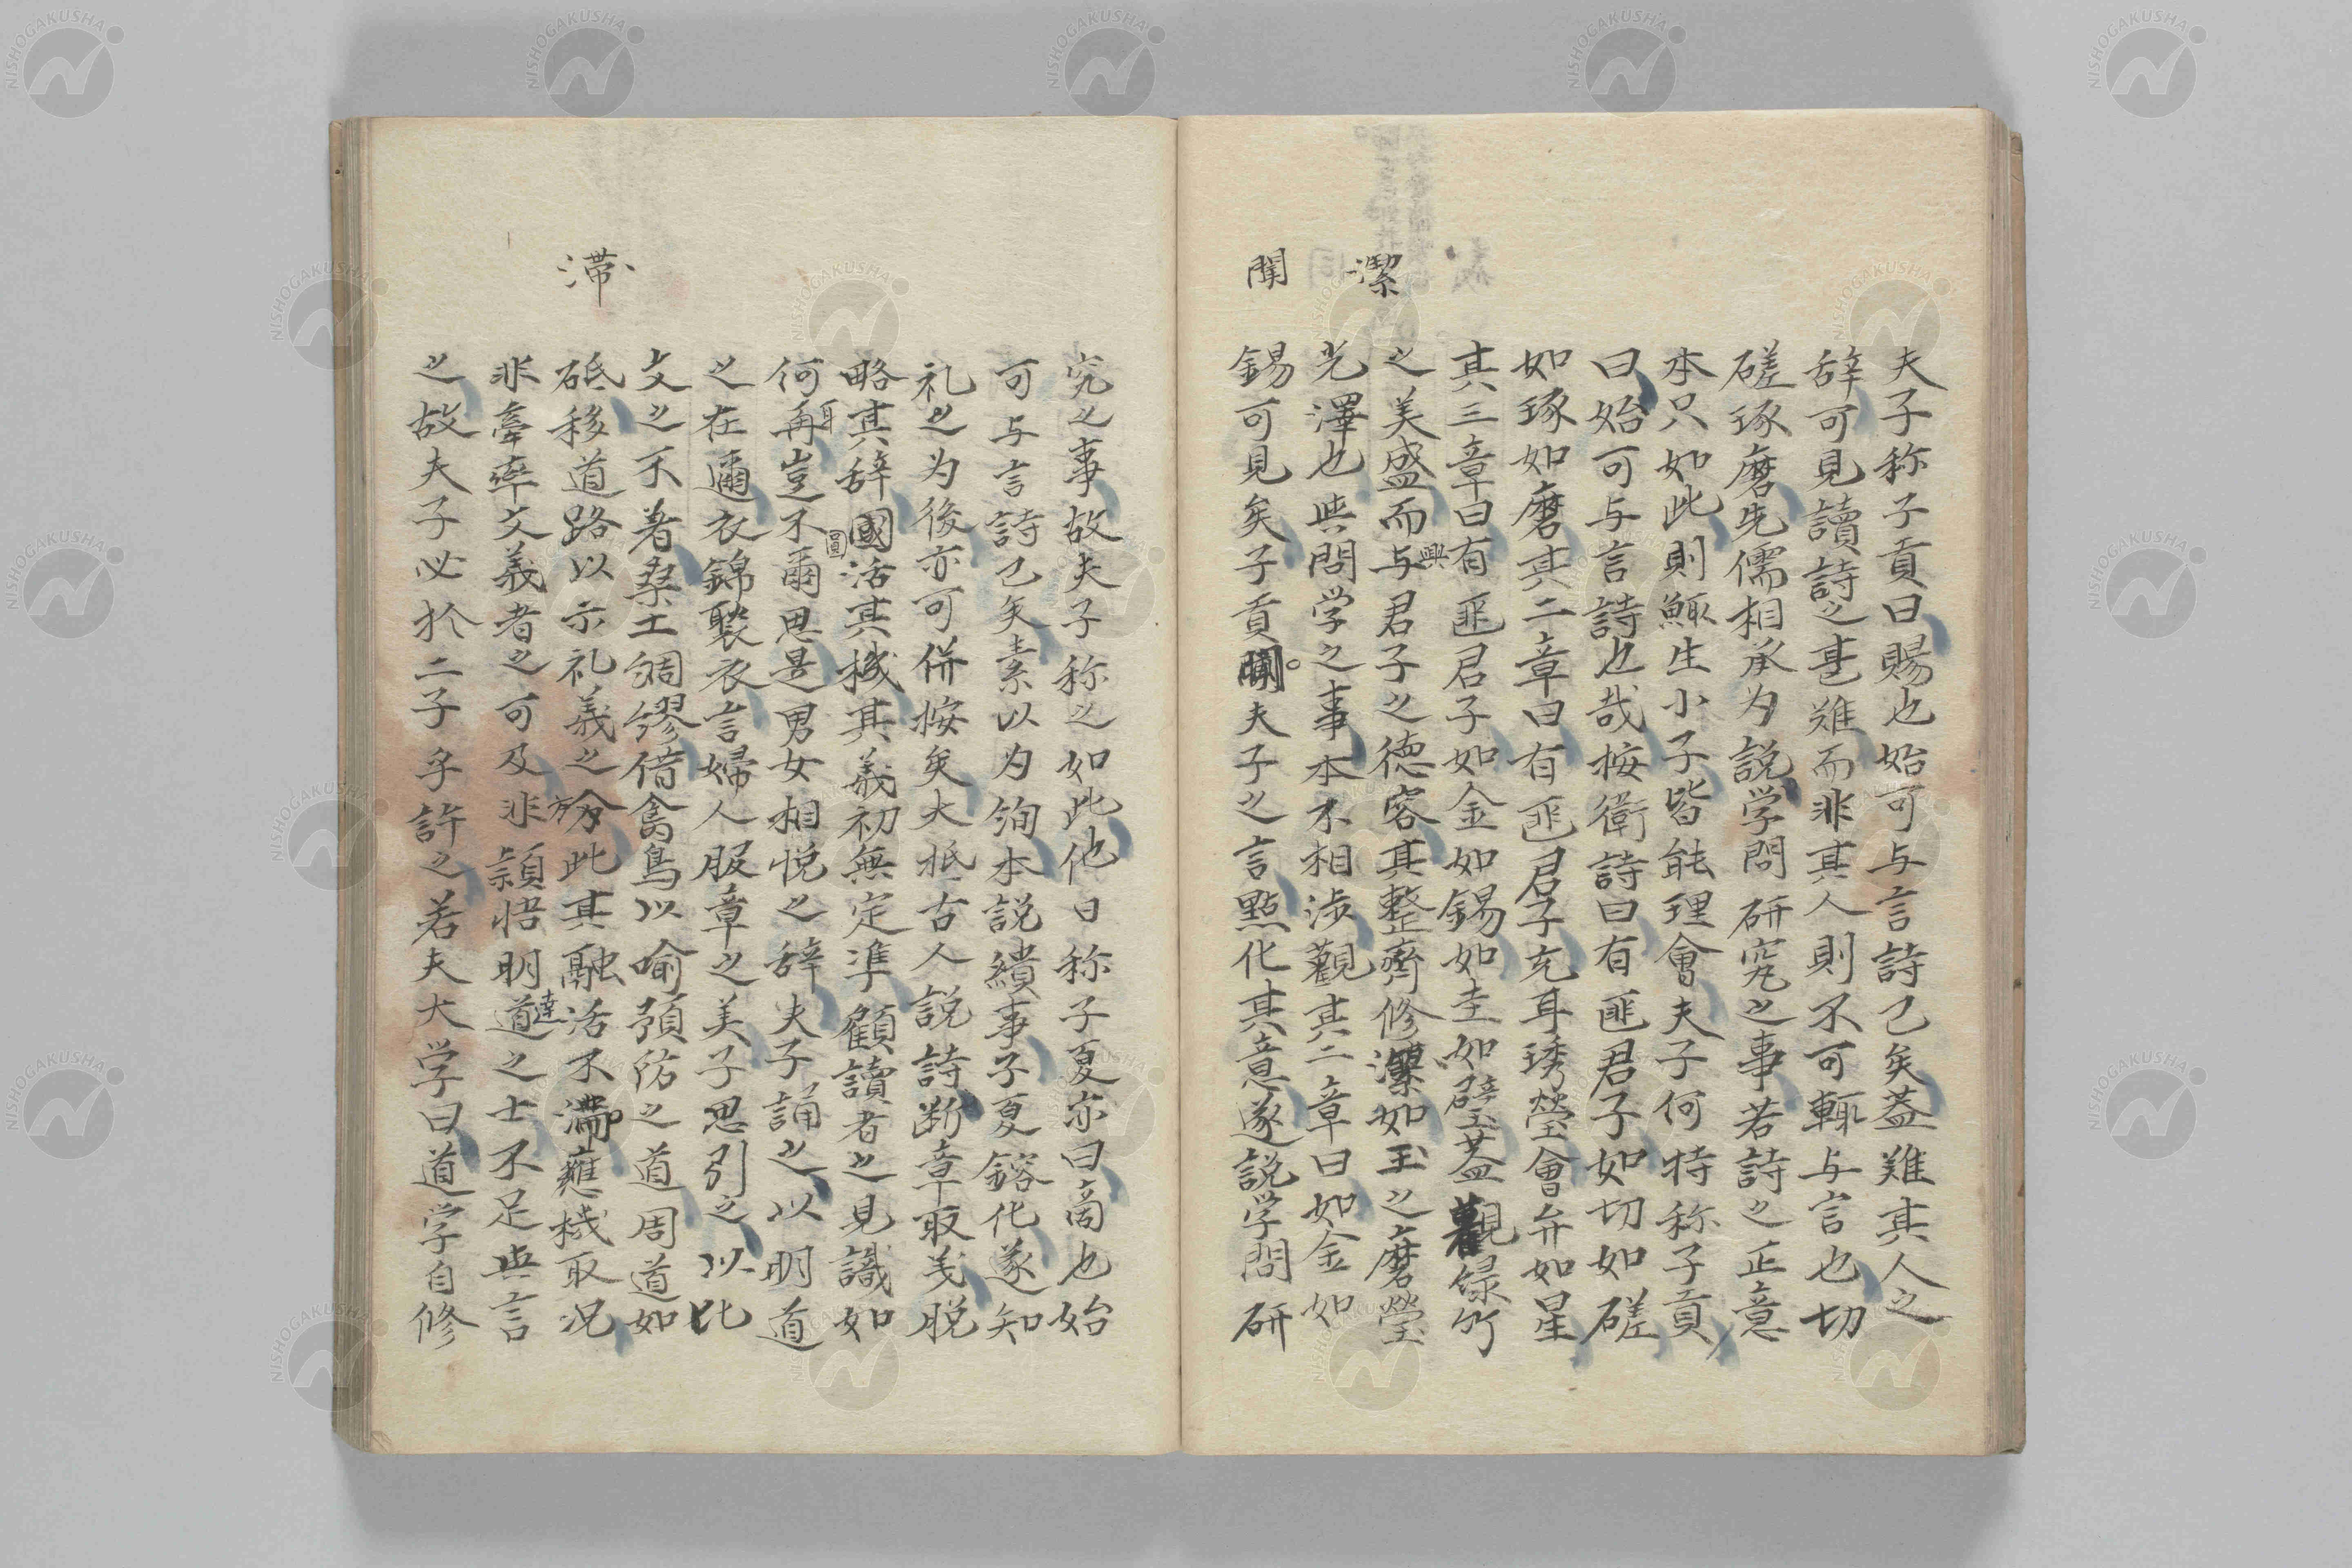 夫子称子貢曰賜也始可与言詩已矣蓋難其人之
辞可見讀詩之甚難而非其人則不可輙与言也切
磋琢磨先儒相承为説学問研究之事若詩之正意
本只如此則鯫生小子皆能理會夫子何特称子貢
曰始可与言詩也哉按衛詩曰有匪君子如切如磋
如琢如磨其二章曰有匪君子充耳琇瑩會弁如星
其三章曰有匪君子如金如錫如圭如璧蓋觀緑竹
之美盛而与君子之德容其整齊修潔如玉之磨瑩
興
光澤也與問学之事本不相渉觀其二章曰如金如
潔
錫可見矣子貢聞夫子之言點化其意遂説学問研
聞
究之事故夫子称之如此他日称子夏亦曰商也始
可与言詩已矣素以为絢本説繢事子夏鎔化遂知
礼之为後亦可併按矣大抵古人説詩断章取义脱
略其辞國活其機其義初無定準顧讀者之見識如
圓
何再豈不爾思是男女相悦之辞夫子誦之以明道
耳
之在邇衣錦褧衣言婦人服章之美子思引之以比
文之不著桑土綢繆借禽鳥以喻預防之道周道如
砥移道路以示礼義之分此其融活不滯應機取况
方
滞
非牽牽文義者之可及非頴悟明道之士不足與言
達
之故夫子必於二子乎許之若夫大学曰道学自修
NISHOGAKUSHA